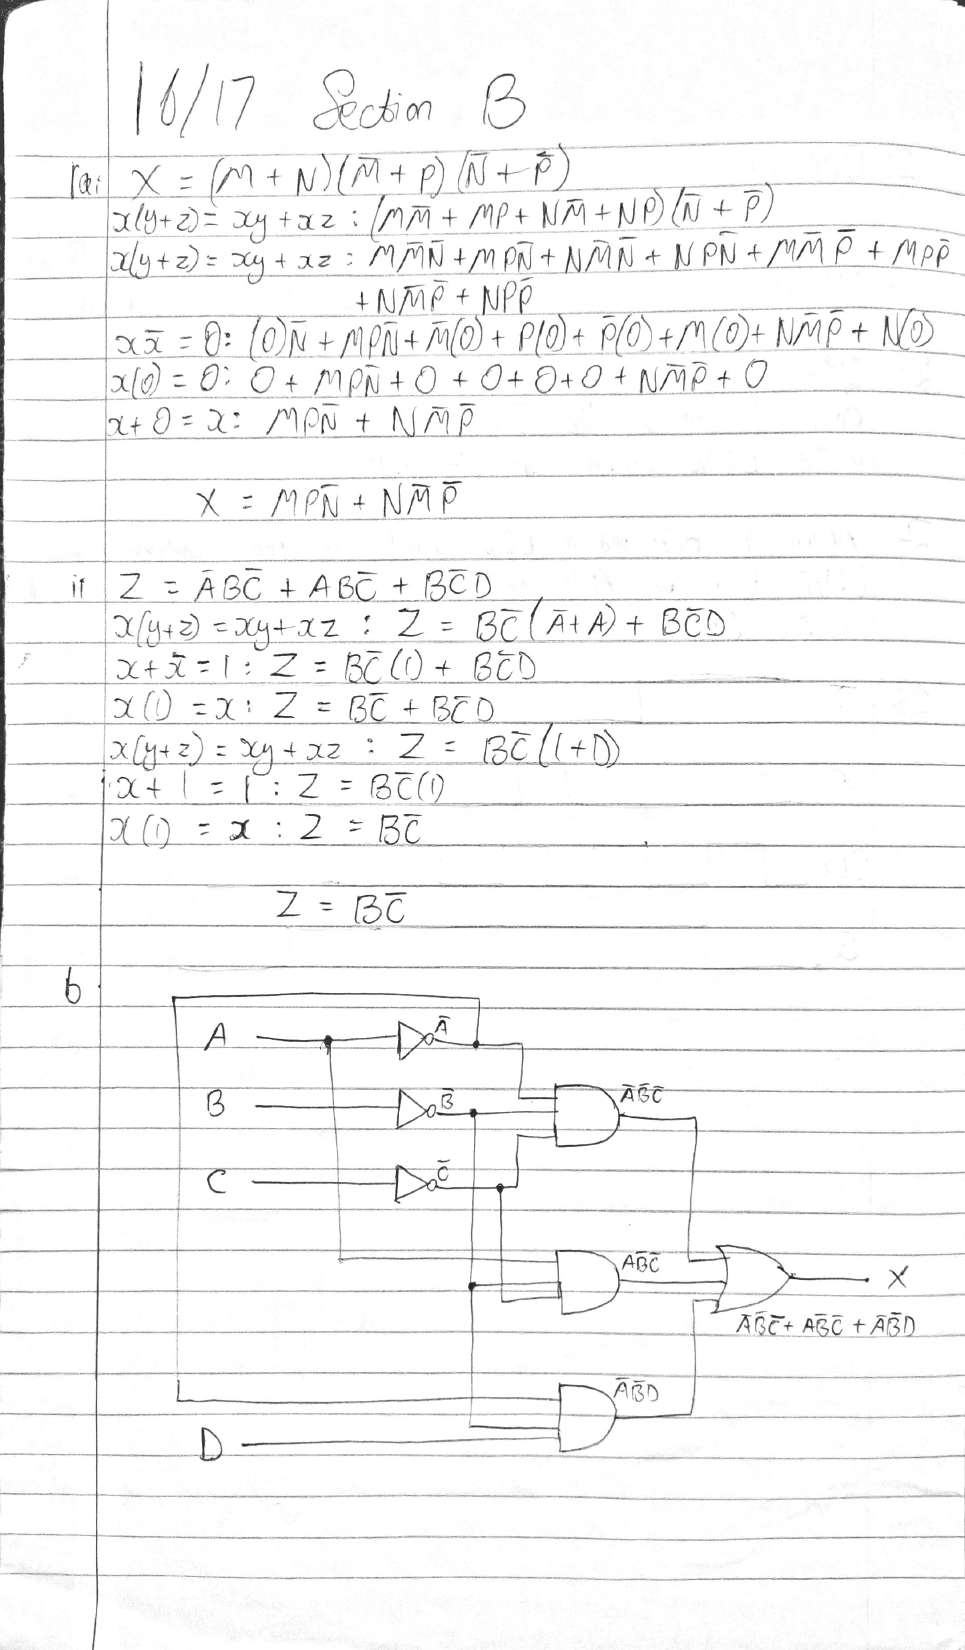 16/17 Section B
1ai X = (M + N)(M̅ + P)(N̅ + P̅)
x(y+z) = xy + xz : (MM̅ + MP + NM̅ + NP)(N̅ + P̅)
x(y+z) = xy + xz : MM̅N̅ + MPN̅ + NM̅N̅ + NPN̅ + MM̅P̅ + MPP̅
+ NM̅P̅ + NPP̅
xx̅ = 0: (0)N̅ + MPN̅ + M̅(0) + P(0) + P̅(0) + M(0) + NM̅P̅ + N(0)
x(0) = 0: 0 + MPN̅ + 0 + 0 + 0 + 0 + NM̅P̅ + 0
x + 0 = x: MPN̅ + NM̅P̅
X = MPN̅ + NM̅P̅
ii Z = A̅BC̅ + ABC̅ + BC̅D
x(y+z) = xy + xz : Z = BC̅(A̅ + A) + BC̅D
x + x̅ = 1 : Z = BC̅(1) + BC̅D
x(1) = x : Z = BC̅ + BC̅D
x(y+z) = xy + xz : Z = BC̅(1+D)
x + 1 = 1 : Z = BC̅(1)
x(1) = x : Z = BC̅
Z = BC̅
b
A A̅
B B̅ A̅B̅C̅
C C̅
AB̅C̅ X
A̅B̅C̅ + AB̅C̅ + A̅B̅D
A̅B̅D
D